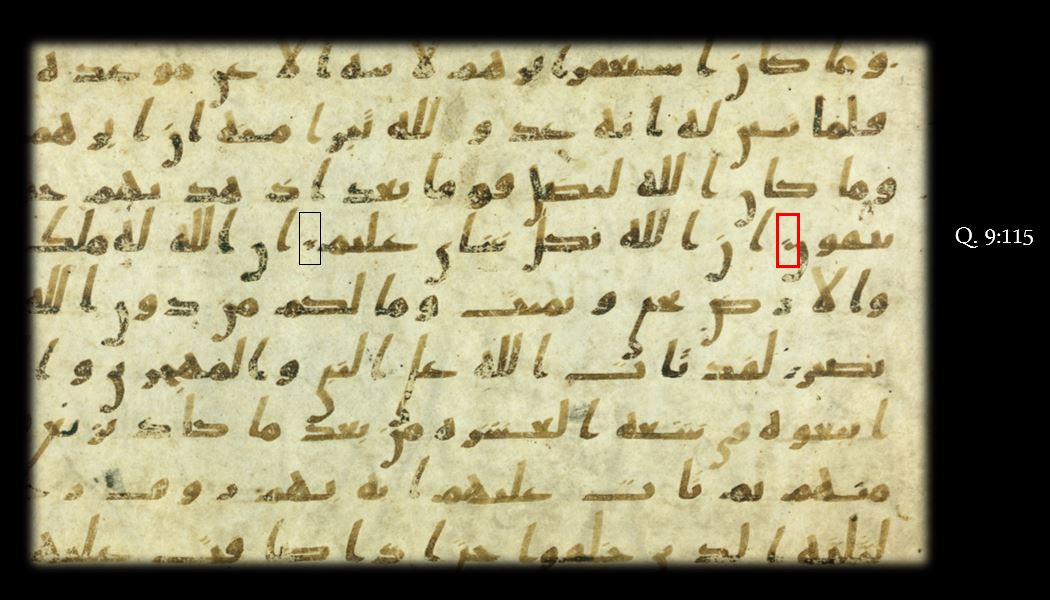 وما كان استغفار ابرهيم لابيه الا عن موعدة
فلما تبين له انه عدو لله تبرا منه ان ابرهم
وما كان الله ليضل قوما بعد اذ هديهم
يتقون ان الله بكل شى عليم ان الله له ملك
Q. 9:115
والارض يحى ويميت وما لكم من دون الله
نصير لقد تاب الله على النبى والمهجرين وا
اتبعوه فى سعة العسرة من بعد ما كاد يزيغ
منهم ثم تاب عليهم انه بهم روف
الثلثة الذين خلفوا حتى اذا ضاقت عليهم